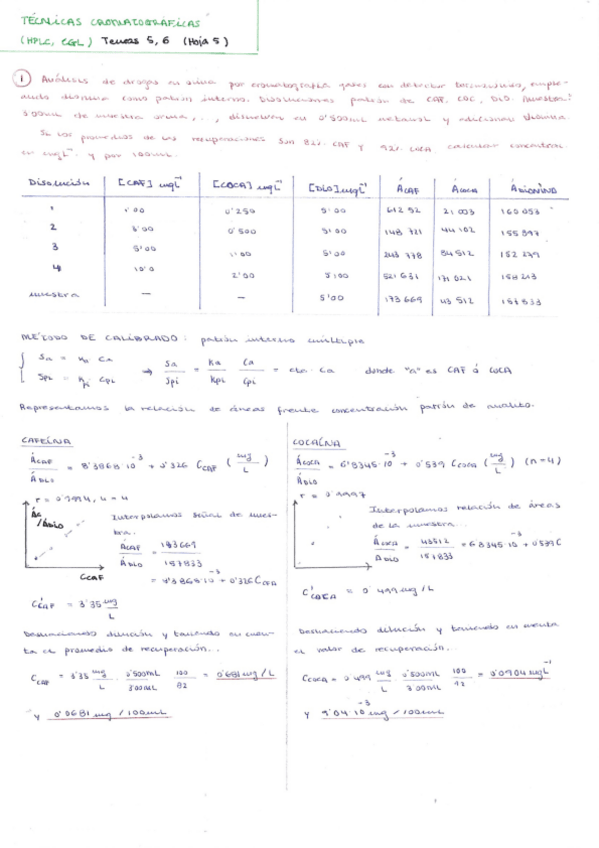 TÉCNICAS CROMATOGRÁFICAS
(HPLC, CGL) Temas 5, 6 (Hoja 5)
1 Análisis de drogas en orina por cromatografía gases con detector emple-
ando como patrón interno. Disoluciones patrón de CAF, COC, DLO. Muestra:
3'00mL de muestra orina, disuelven en 0'500mL metanol y adicionan
Si los promedios de las recuperaciones son 82% CAF y 92% COCA, calcular concentra.
en mgL⁻¹ y por 100mL.
Disolución [CAF] mgL⁻¹ [COCA] mgL⁻¹ [DLO] mgL⁻¹ ÁCAF ÁCOCA
1 1'00 0'250 5'00 21003 160053
2 0'500 5'00 148721 44102
3 5'00 1'00 5'00
4 10'0 2'00 521631 171021
muestra — — 5'00 173669 43512
MÉTODO DE CALIBRADO: patrón interno múltiple
Sa = Ka Ca
Spi = Kpi Cpi → Sa/Spi = Ka/Kpi Ca/Cpi = cte. Ca donde "a" es CAF ó COCA
Representamos la relación de áreas frente concentración patrón de analito.
CAFEÍNA
ÁCAF/ÁDLO = 8'3868·10⁻³ + 0'326 CCAF (mg/L)
r = 0'9994, n = 4
Interpolamos señal de mues-
tra.
ÁCAF/ÁDLO =
CCAF
C'CAF = 3'35 mg/L
Deshaciendo dilución y teniendo en cuen-
ta el promedio de recuperación..
CCAF = 3'35 mg/L · 0'500mL/3'00mL · 100/82 = 0'681 mg/L
y 0'0681 mg/100mL
COCAÍNA
ÁCOCA/ÁDLO = 6'8345·10⁻³ + 0'539 CCOCA (mg/L) (n=4)
r = 0'9997
Interpolamos relación de áreas
de la muestra..
ÁCOCA/ÁDLO = 43512/157833 = 6'8345·10⁻³ + 0'539C
C'COCA = 0'499 mg/L
Deshaciendo dilución y teniendo en cuenta
el valor de recuperación..
CCOCA = 0'499 mg/L · 0'500mL/3'00mL · 100/92 = 0'0904 mgL⁻¹
y 9'04·10⁻³ mg/100mL